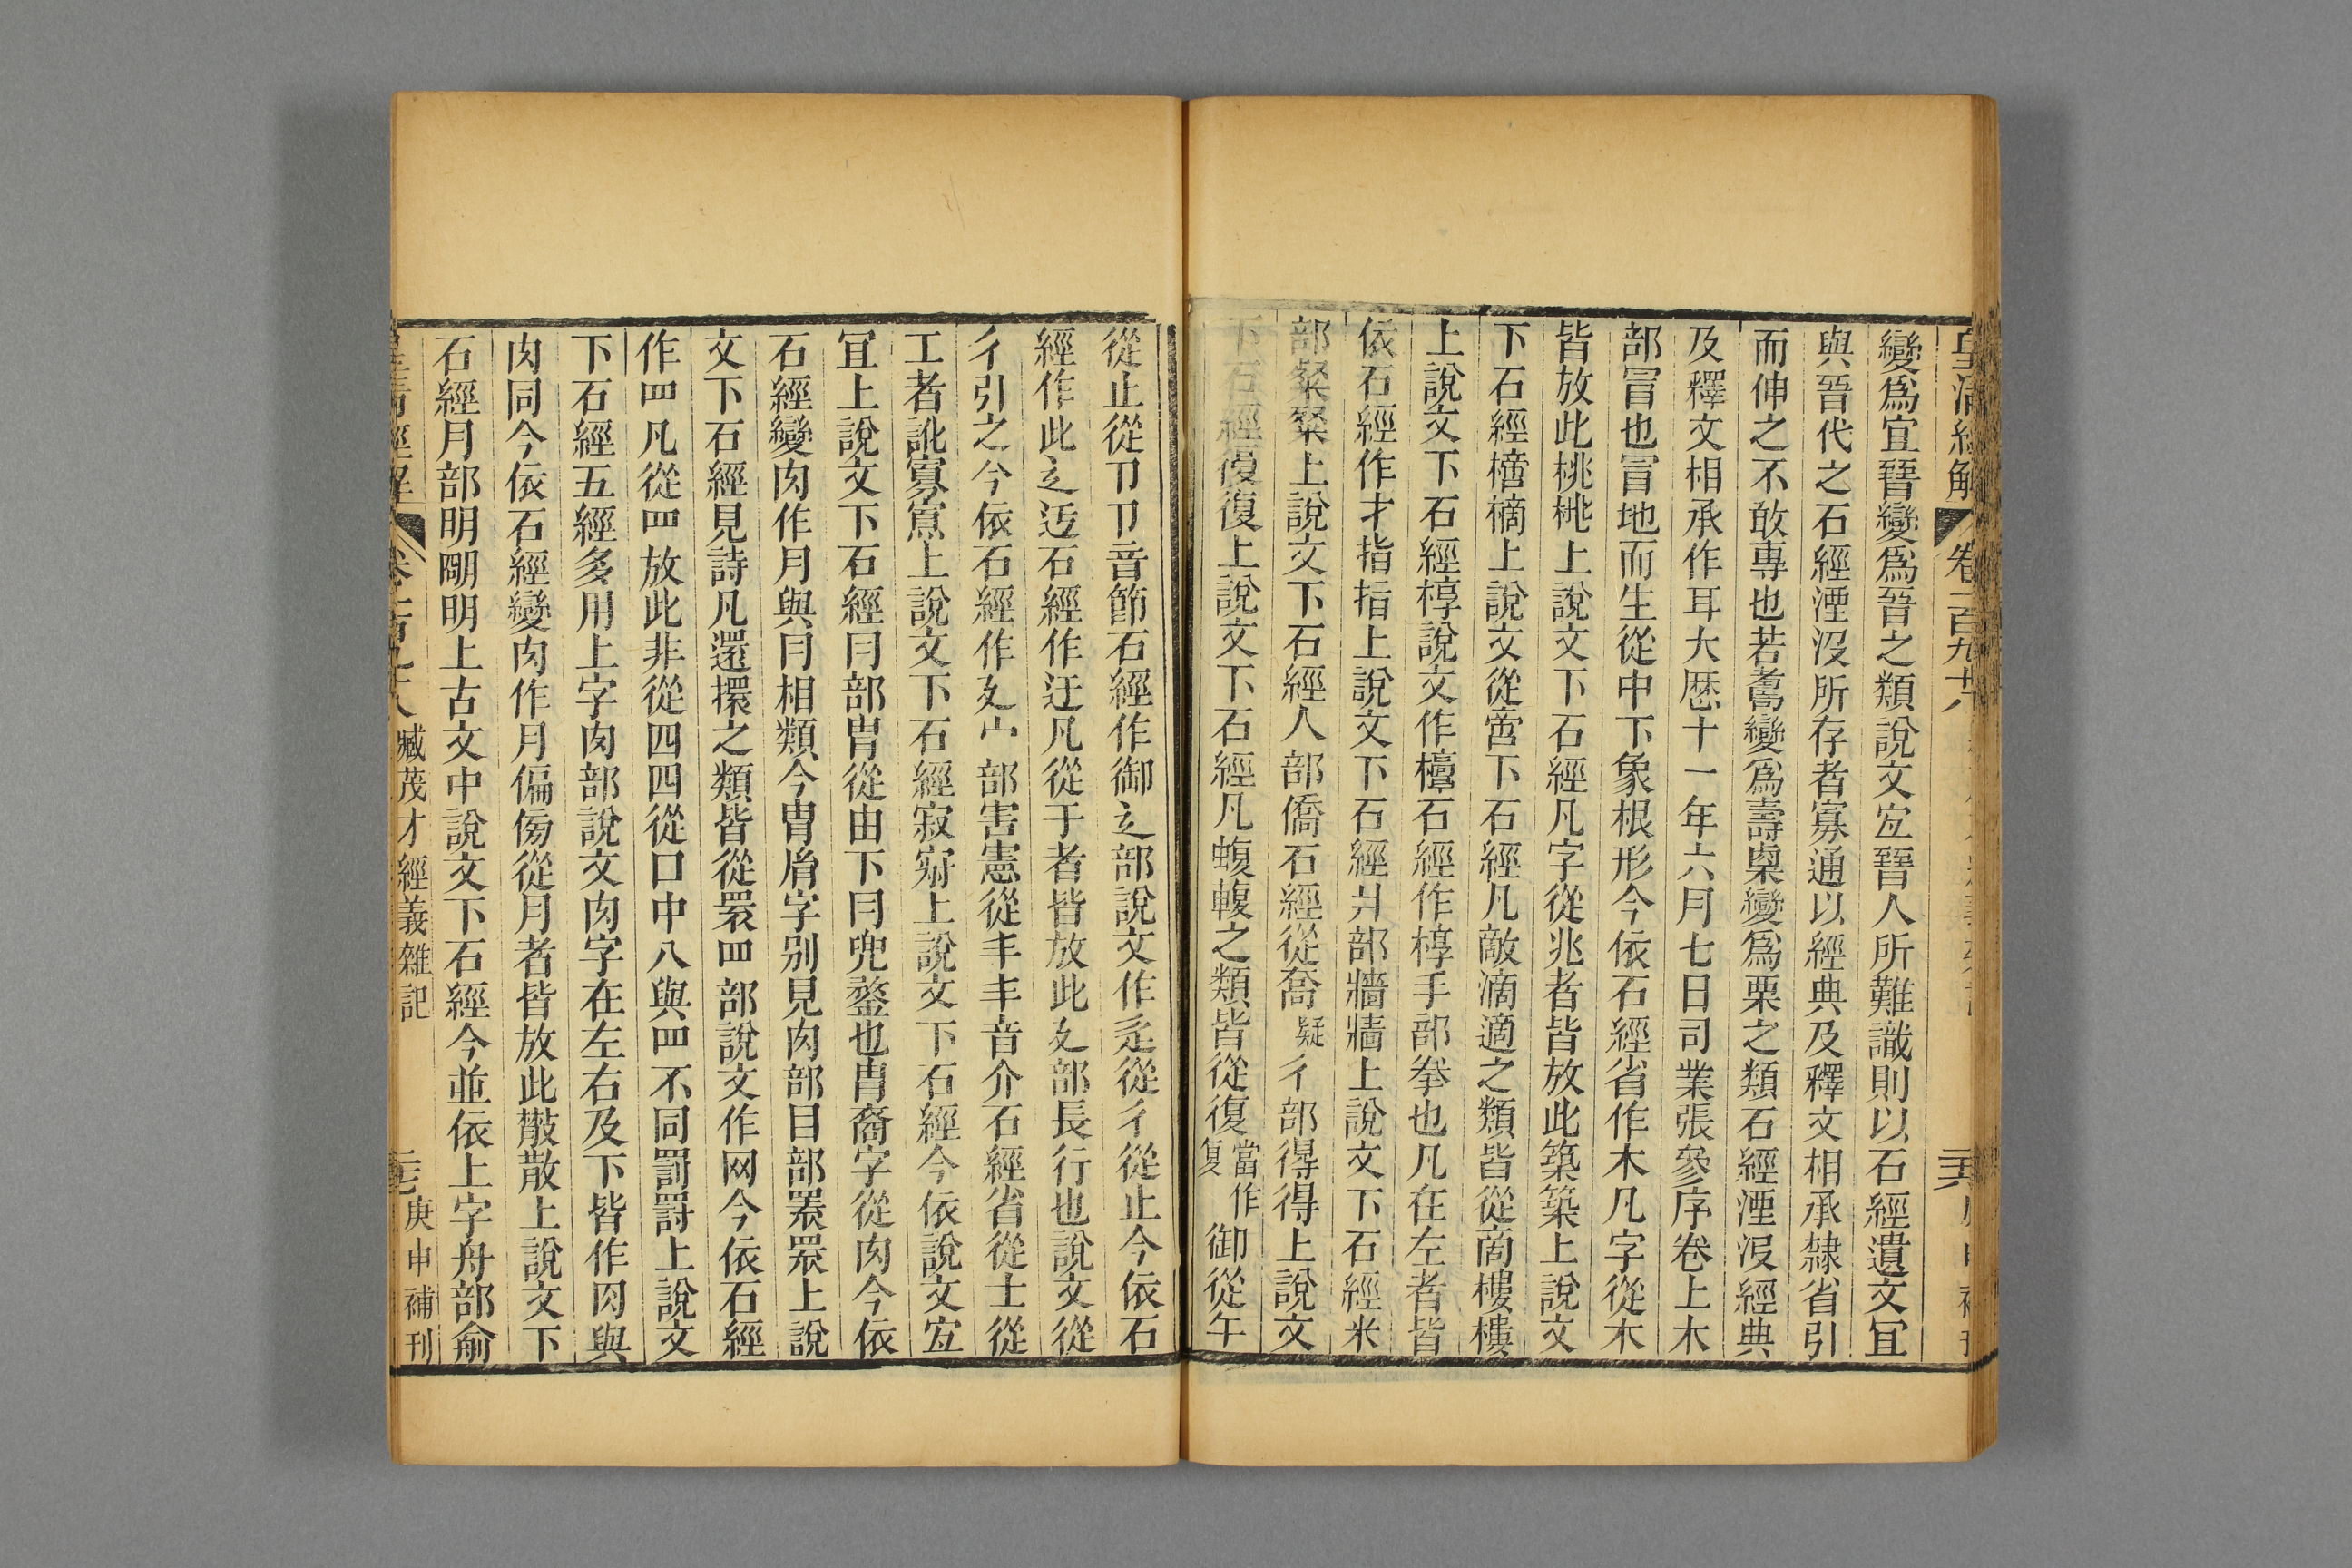 皇清經解 卷二百九十八
變爲宜晉變爲晋之類說文宐晉人所難識則以石經遺文冝
與晉代之石經湮沒所存者寡通以經典及釋文相承隸省引
而伸之不敢專也若𦒱變爲壽㮚變爲栗之類石經湮沒經典
及釋文相承作耳大歴十一年六月七日司業張參序卷上木
部冒也冒地而生從屮下象根形今依石經省作木凡字從木
皆放此桃桃上說文下石經凡字從兆者皆放此築築上說文
下石經樀樀上說文從啻下石經凡敵滴適之類皆從啇樓樓
上說文下石經椁說文作㰌石經作椁手部拳也凡在左者皆
依石經作扌指指上說文下石經爿部牆牆上說文下石經米
部粲粲上說文下石經人部僑石經從喬疑彳部得得上說文
下石經復復上說文下石經凡蝮輹之類皆從復當作复御從午
從止從卩卩音節石經作御辵部說文作辵從彳從止今依石
經作此辶迃石經作迂凡從于者皆放此廴部長行也說文從
彳引之今依石經作廴宀部害憲從丯丯音介石經省從士從
工者訛寡寡上說文下石經寂㝛上說文下石經今依說文宐
冝上說文下石經冃部冑從由下冃兜鍪也冑裔字從肉今依
石經變肉作月與冃相類今冑胄字别見肉部目部睘睘上說
文下石經見詩凡還擐之類皆從睘罒部說文作网今依石經
作罒凡從罒放此非從四四從口中八與罒不同罰罸上說文
下石經五經多用上字肉部說文肉字在左右及下皆作⺼與
肉同今依石經變肉作月偏傍從月者皆放此㪚散上說文下
石經月部明朙明上古文中說文下石經今並依上字舟部俞
皇清經解 卷二百九十八 臧茂才經義雜記 庚申補刊